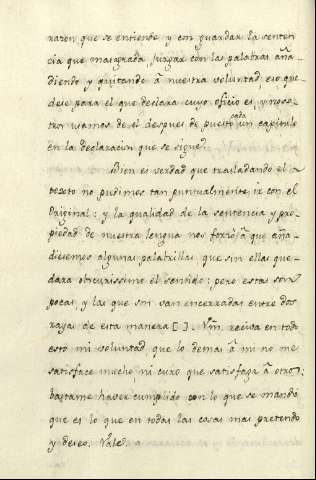 razon que se entiende y con guardar la senten
cia que mas agrada, jugar con las palabras aña
diendo y quitando à nuestra voluntad, eso que
dese para el que declara cuyo oficio es, y noso
tros usamos de él despues de puesto cada un capitulo
en la declaracion que se sigue.
Bien es verdad que trasladando el
texto no pudimos tan puntualmente ir con el
Original: y la qualidad de la sentencia y pro
piedad de nuestra lengua nos forzó à que aña
diesemos algunas palabrillas, que sin ellas que
dara obscurissimo el sentido: pero estas son
pocas, y las que son van encerradas entre dos
rayas de esta manera [ ]. Vm. reciva en todo
esto mi voluntad, que lo demas à mi no me
satisface mucho, ni curo que satisfaga à otros:
bastame haver cumplido con lo que se mandó
que es lo que en todas las cosas mas pretendo
y deseo. Vale